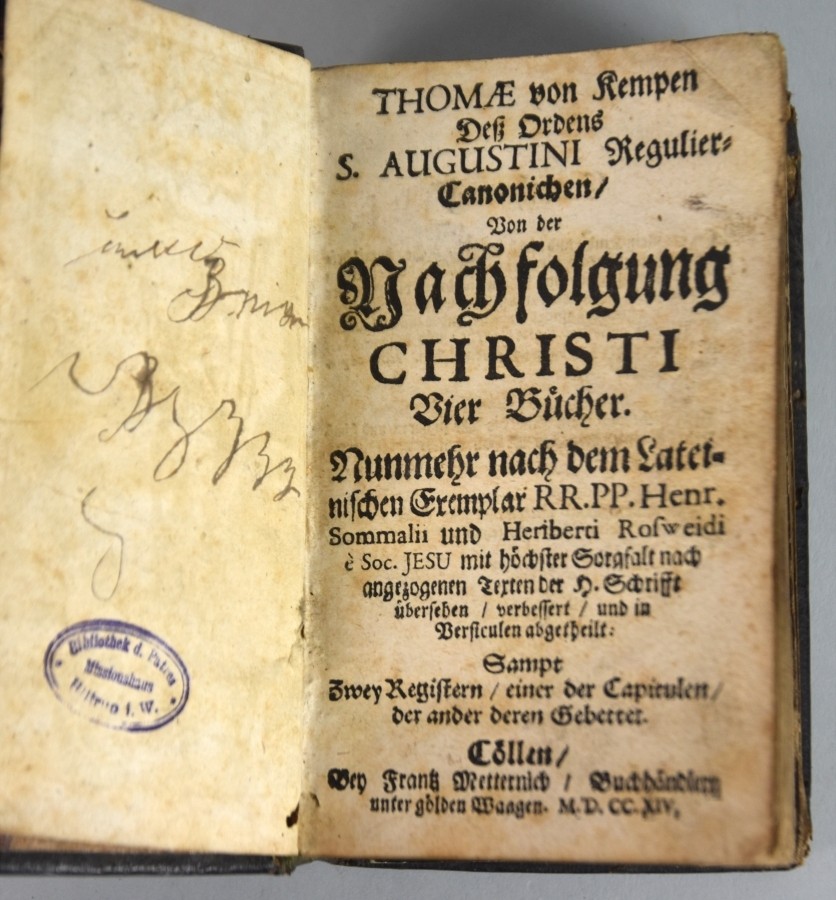 Bibliothek d. Patres
Missionshaus
Hiltrup i. W.
THOMÆ von Kempen
Deß Ordens
S. AUGUSTINI Regulier-
Canonichen/
Von der
Nachfolgung
CHRISTI
Vier Bücher.
Nunmehr nach dem Latei-
nischen Exemplar RR.PP. Henr.
Sommalii und Heriberti Rosweidi
è Soc. JESU mit höchster Sorgfalt nach
angezogenen Texten der H. Schrifft
übersehen / verbessert / und in
Versiculen abgetheilt:
Sampt
Zwey Registern / einer der Capitulen/
der ander deren Gebettet.
Cöllen/
Bey Frantz Metternich / Buchhändlern
unter gölden Waagen. M.D.CC.XIV.